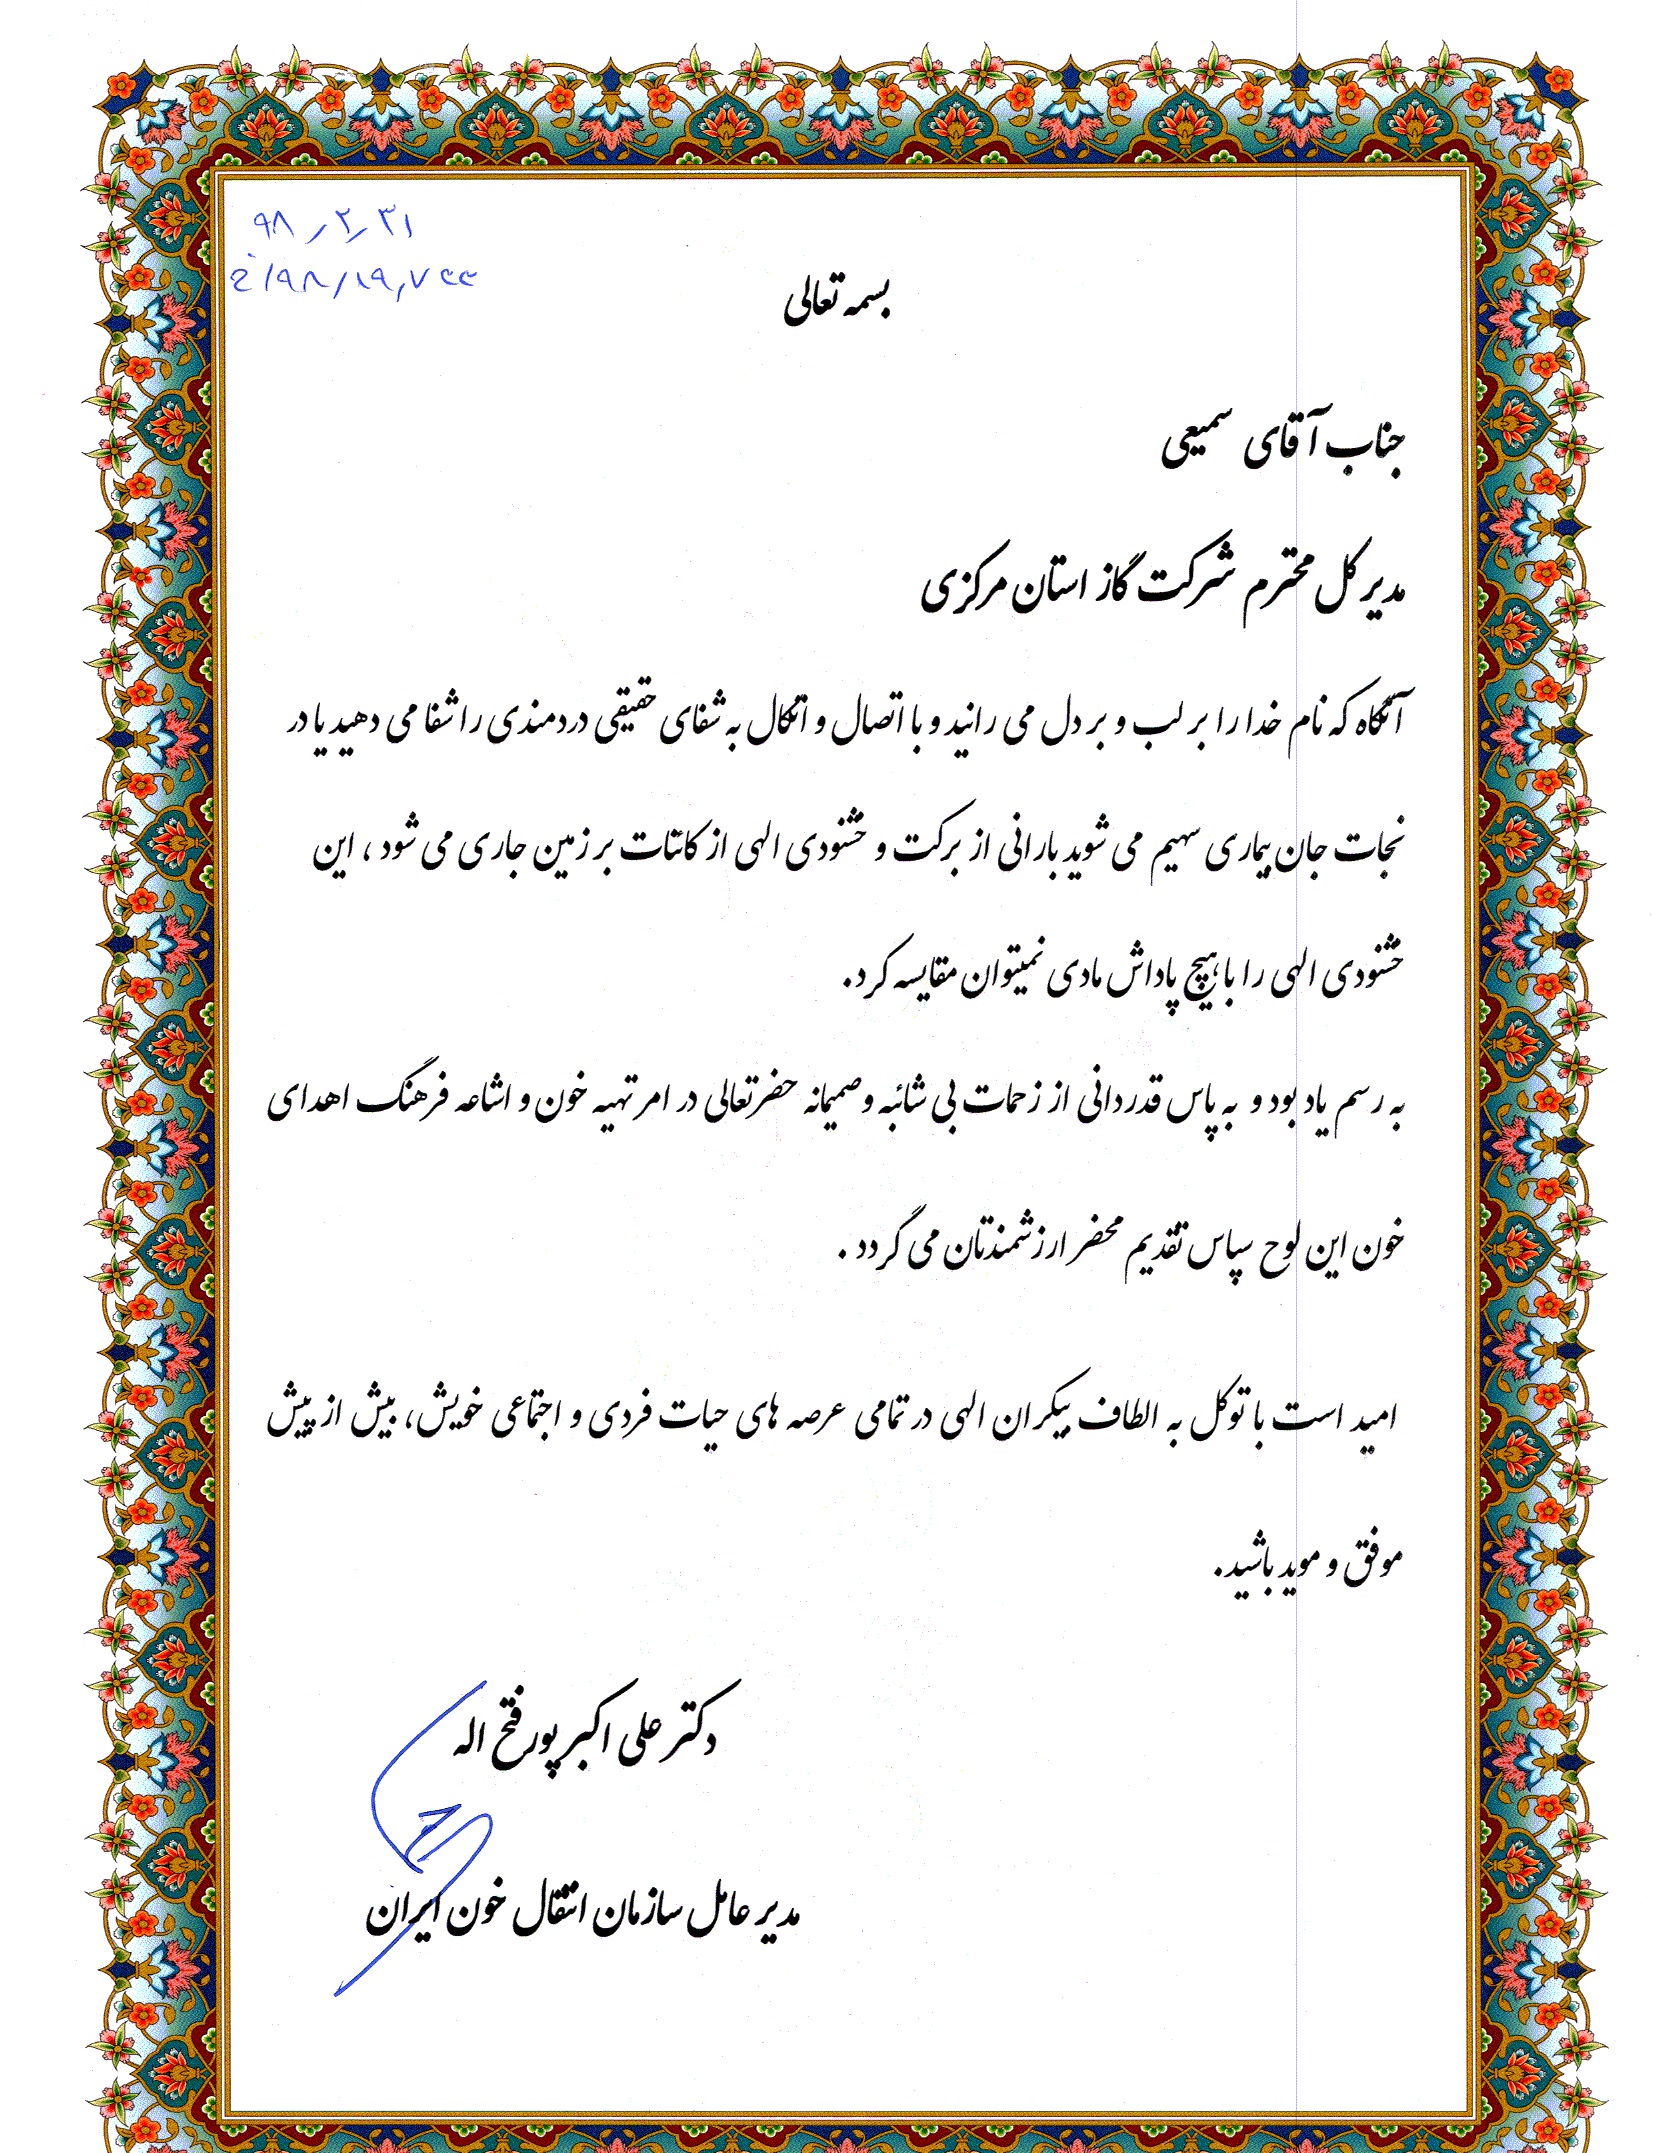 ۹۸/۲/۳۱
بسمه تعالی
جناب آقای سمیعی
مدیر کل محترم شرکت گاز استان مرکزی
آنگاه که نام خدا را بر لب و بر دل می رانید و با اتصال و اتکال به شفای حقیقی دردمندی را شفا می دهید یا در
نجات جان بیماری سهیم می شوید بارانی از برکت و خشنودی الهی از کائنات بر زمین جاری می شود ، این
خشنودی الهی را با هیچ پاداش مادی نمیتوان مقایسه کرد.
به رسم یاد بود و به پاس قدردانی از زحمات بی شائبه و صمیمانه حضرتعالی در امر تهیه خون و اشاعه فرهنگ اهدای
خون این لوح سپاس تقدیم محضر ارزشمندتان می گردد .
امید است با توکل به الطاف بیکران الهی در تمامی عرصه های حیات فردی و اجتماعی خویش، بیش از پیش
موفق و موید باشید.
دکتر علی اکبر پور فتح اله
مدیر عامل سازمان انتقال خون ایران